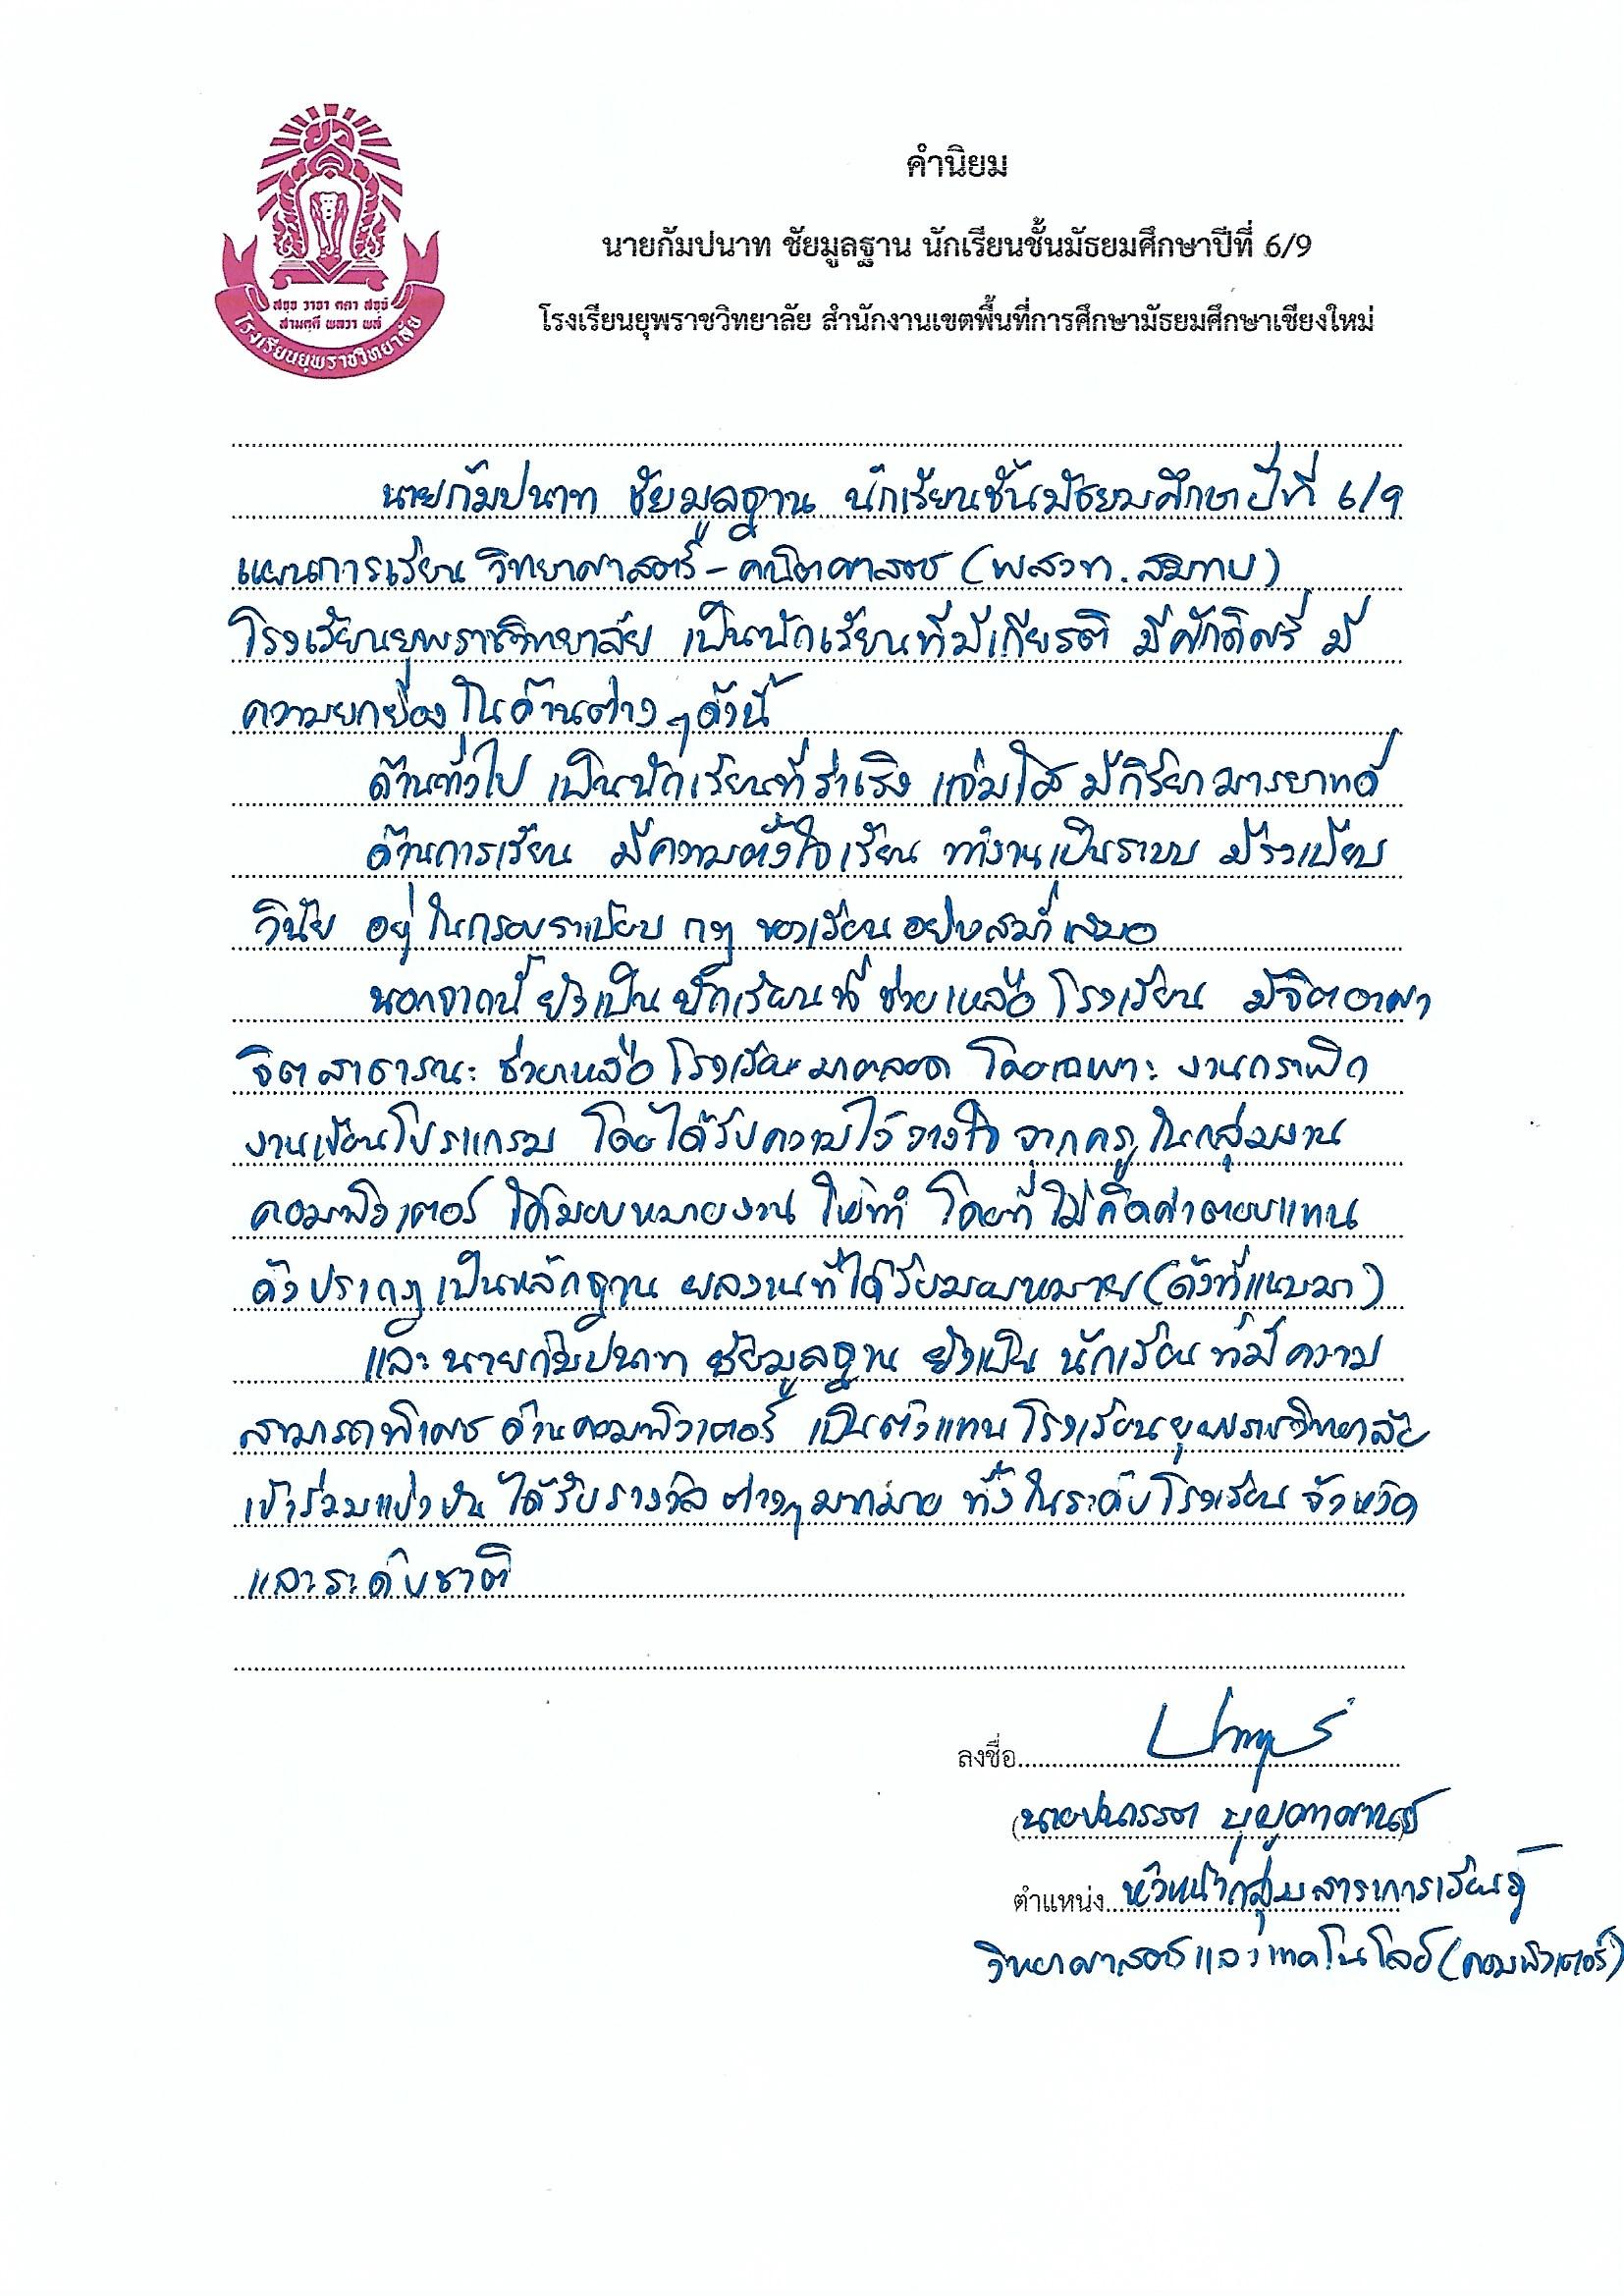 คำนิยม
นายกัมปนาท ชัยมูลฐาน นักเรียนชั้นมัธยมศึกษาปีที่ 6/9
โรงเรียนยุพราชวิทยาลัย สำนักงานเขตพื้นที่การศึกษามัธยมศึกษาเชียงใหม่
โรงเรียนยุพราชวิทยาลัย
นายกัมปนาท ชัยมูลฐาน นักเรียนชั้นมัธยมศึกษาปีที่ 6/9
แผนการเรียน วิทยาศาสตร์ - คณิตศาสตร์ (พสวท. สมทบ)
โรงเรียนยุพราชวิทยาลัย เป็นนักเรียนที่มีเกียรติ มีศักดิ์ศรี มี
ความยกย่อง ในด้านต่าง ๆ ดังนี้
ด้านทั่วไป เป็นนักเรียนที่ร่าเริง แจ่มใส มีกิริยามารยาทดี
ด้านการเรียน มีความตั้งใจเรียน ทำงานเป็นระบบ มีระเบียบ
วินัย อยู่ในกรอบระเบียบ กฎ ของเรียน อย่างสม่ำเสมอ
นอกจากนี้ ยังเป็น นักเรียนที่ ช่วยเหลือ โรงเรียน มีจิตอาสา
จิตสาธารณะ ช่วยเหลือ โรงเรียนมาตลอด โดยเฉพาะ งานกราฟิก
งานเขียนโปรแกรม โดยได้รับความไว้วางใจ จากครู ในกลุ่มงาน
คอมพิวเตอร์ ได้มอบหมายงาน ให้ทำ โดยที่ ไม่คิดค่าตอบแทน
ดังปรากฏ เป็นหลักฐาน ผลงานที่ได้รับมอบหมาย (ดังที่แนบมา)
และ นายกัมปนาท ชัยมูลฐาน ยังเป็น นักเรียน ที่มีความ
สามารถพิเศษ ด้านคอมพิวเตอร์ เป็นตัวแทน โรงเรียนยุพราชวิทยาลัย
เข้าร่วมแข่งขัน ได้รับรางวัล ต่างๆ มากมาย ทั้งในระดับโรงเรียน จังหวัด
และระดับชาติ
ลงชื่อ
ตำแหน่ง หัวหน้ากลุ่มสาระการเรียนรู้
วิทยาศาสตร์และเทคโนโลยี (คอมพิวเตอร์)